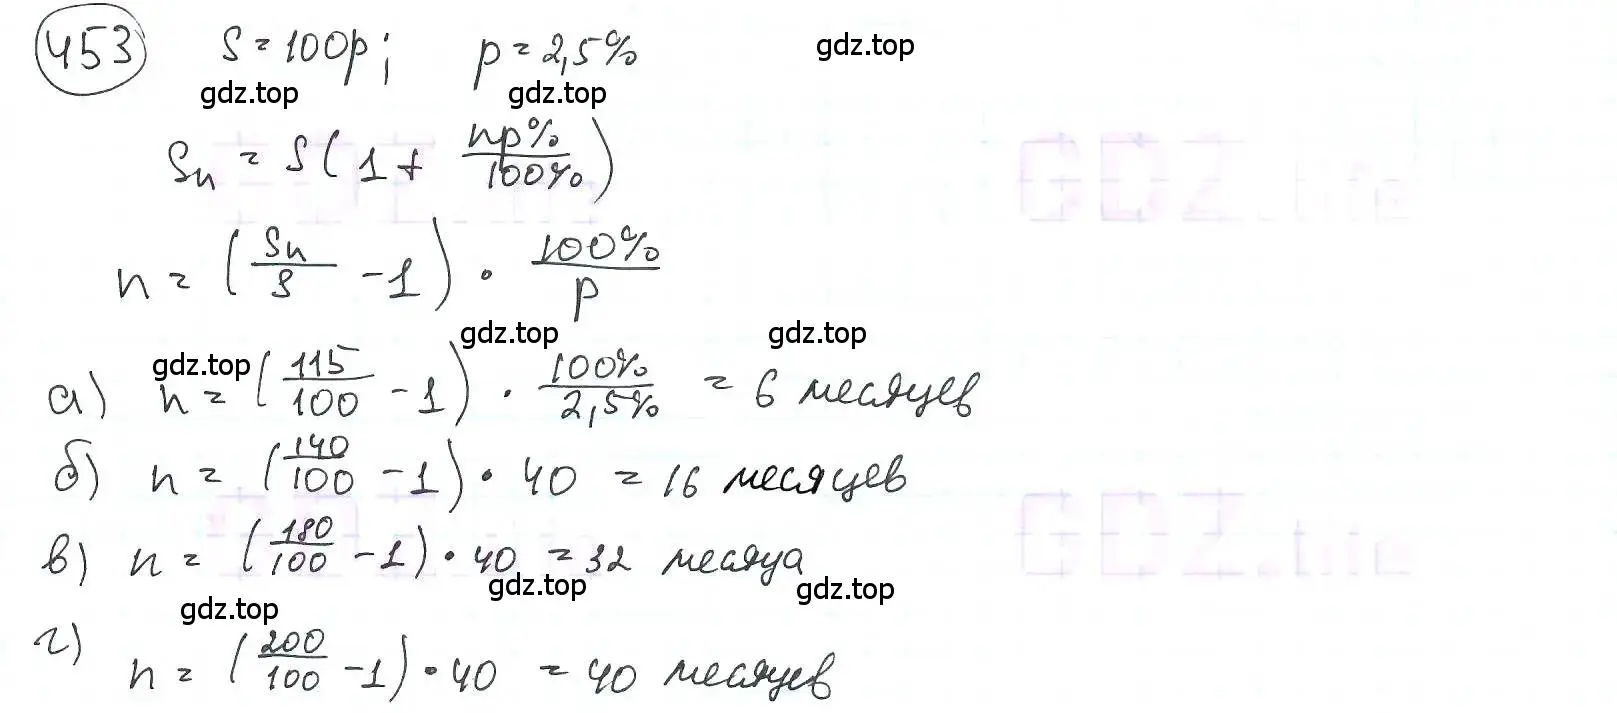 453 S = 100р; p = 2,5% gdz.top
gdz.top gdz.top
Sn = S(1 + np%/100%)
GDZ.life GDZ.life
n = (Sn/S - 1) · 100%/p
gdz.top gdz.top gdz.top
а) n = (115/100 - 1) · 100%/2,5% = 6 месяцев
б) n = (140/100 - 1) · 40 = 16 месяцев
GDZ.life GDZ.life
в) n = (180/100 - 1) · 40 = 32 месяца
gdz.top gdz.top gdz.top
г) n = (200/100 - 1) · 40 = 40 месяцев